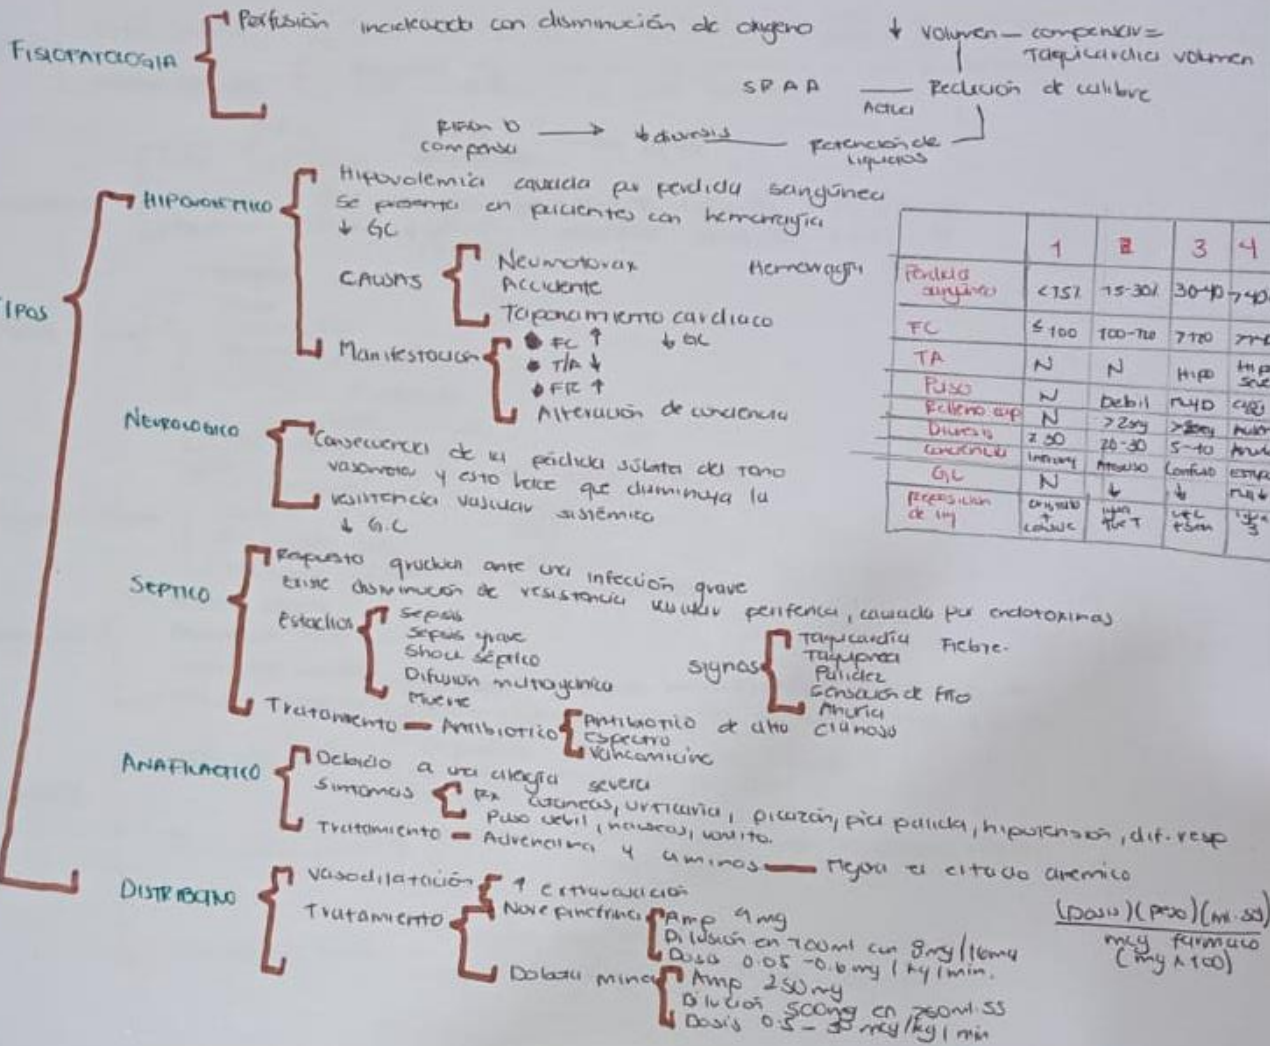 FISIOPATOLOGIA
Perfusión inadecuada con disminución de oxigeno
↓ volumen — compensar =
Taquicardia volumen
SRAA — Reducción de calibre
Actua
Riñón
compensa → ↓ diuresis — Retención de
liquidos
TIPOS
HIPOVOLEMICO
Hipovolemia causada por perdida sangúnea
Se presenta en pacientes con hemorragia
↓ GC
CAUSAS
Neumotorax
Accidente
Taponamiento cardiaco
Hemorragia
Manifestación
FC ↑ ↓ GC
T/A ↓
FR ↑
Alteración de conciencia
1 2 3 4
Perdida
sangúinea <15% 15-30% 30-40 >40
FC ≤100 100-120 >120
TA N N Hipo Hipo
Pulso N Debil
Relleno cap N >2seg
Diuresis ≥30 20-30 5-10
Conciencia Confuso
GC N ↓ ↓
Reposición
de liq
NEUROLOGICO
Consecuencia de la pérdida súbita del tono
vasomotor y esto hace que disminuya la
resistencia vascular sistémica
↓ G.C
SEPTICO
Respuesta ante una infección grave
Existe disminución de resistencia vascular periferica, causada por endotoxinas
Estadios
Sepsis
Sepsis grave
Shock séptico
Difusión multiorganica
Muerte
Signos
Taquicardia Fiebre.
Taquipnea
Palidez
Sensación de frio
Anuria
cianosis
Tratamiento — Antibiotico
Antibiotico de alto
Espectro
Vancomicina
ANAFILACTICO
Debido a una alergia severa
Sintomas
Rx cutaneas, urticaria, picazón, piel palida, hipotension, dif. resp
Pulso debil, nauseas, vomito.
Tratamiento — Adrenalina y aminas — Mejora el estado
DISTRIBUTIVO
Vasodilatación ↑ extravasacion
Tratamiento
Norepinefrina
Amp 4mg
Dilusión en 100ml con 8mg/16mg
Dosis 0.05 - 0.6 mg/kg/min.
Dobutamina
Amp 250mg
Dilución 500mg en 250ml SS
Dosis mcg/kg/min
(Dosis)(peso)(ml.ss)
mcg farmaco